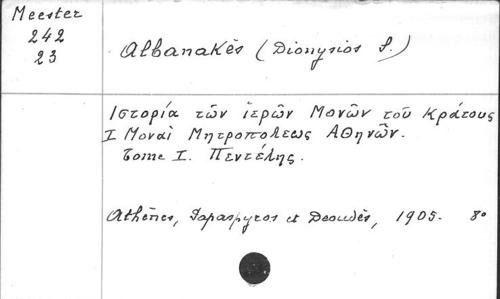 Meester
242
23
Albanakès (Dionysios S.)
Ιστορία τῶν ἱερῶν Μονῶν τοῦ Κράτους
I Μοναὶ Μητροπολεως Αθηνῶν.
Tome I. Πεντέλης.
Athènes, Papaspyros et Desudès, 1905. 8°